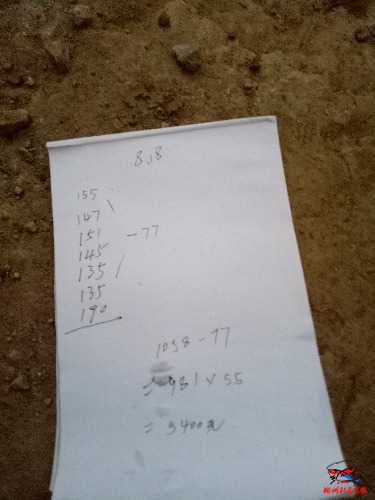 8.18
155
147
151 -77
145
135
135
190
1058-77
=981×55
=5400元